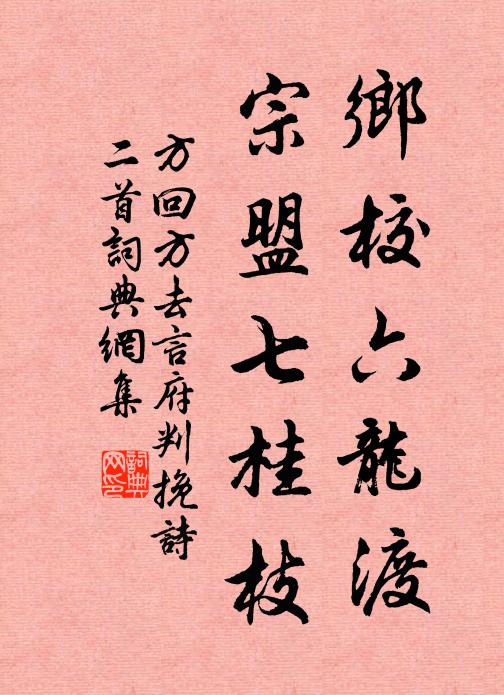 鄉校六龍渡
宗盟七桂枝
方回方去言府判挽詩
二首詞典網集
詞典
网印